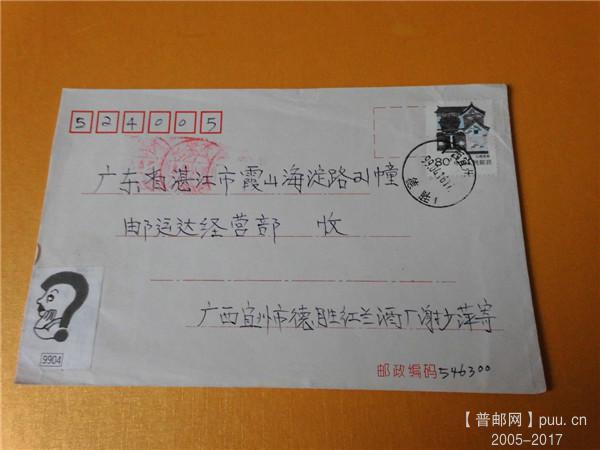 524005
广东省湛江市霞山海淀路21幢
邮运达经营部 收
广西宜州市德胜红兰酒厂谢少萍寄
邮政编码 546300
80
9904
【普邮网】puu.cn
2005-2017